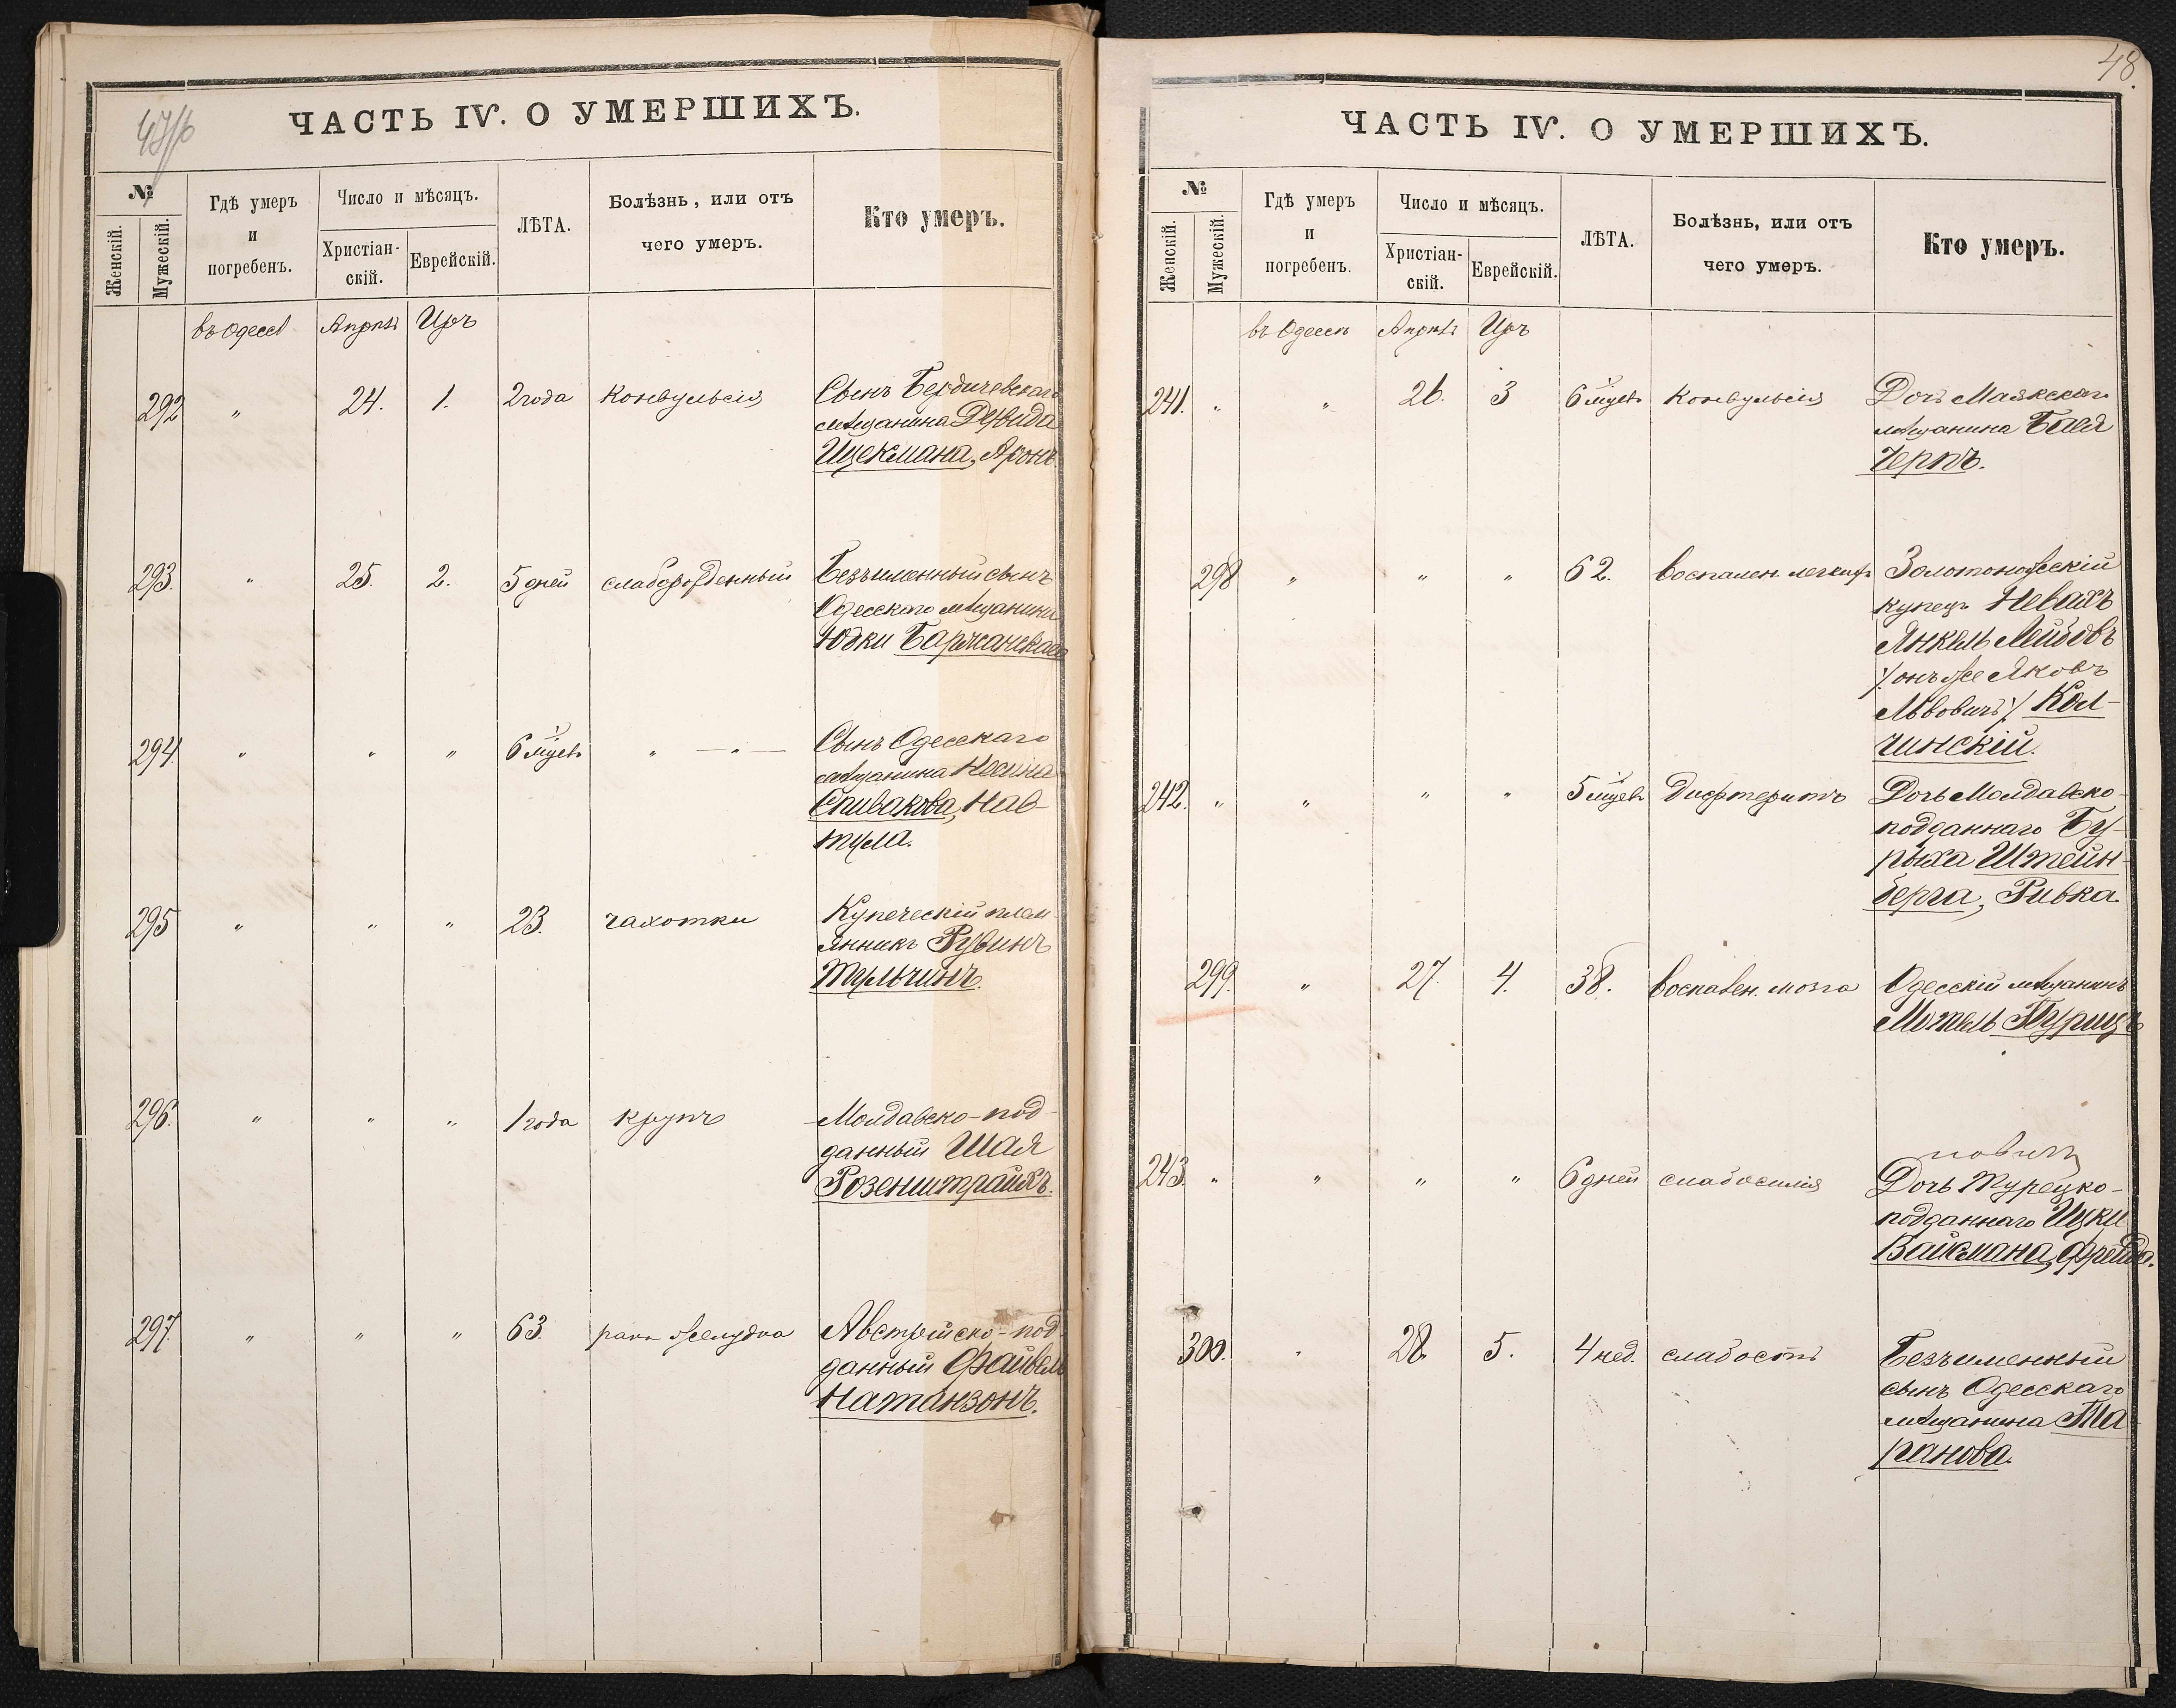 47/б
ЧАСТЬ IV. О УМЕРШИХЪ.
№
Женскій.
Мужескій.
Гдѣ умеръ
и
погребенъ.
Число и мѣсяцъ.
Христіан-
скій.
Еврейскій.
ЛѢТА.
Болѣзнь, или отъ
чего умеръ.
Кто умеръ.
въ Одессѣ Апрѣль Иръ
292 " 24. 1. 2 года конвульсія Сынъ Бердичевскаго
мѣщанина Дувида
Ицекмана, Аронъ
293. " 25. 2. 5 дней слаборожденный Безъименный сынъ
Одесскаго мѣщанина
Юдки Баржанскаго
294. " " " 6 мѣсцевъ " — " — Сынъ Одесскаго
мѣщанина Носина
Спивакова, Наф-
тула.
295 " " " 23. чахотки Купеческій племя-
нникъ Рувинъ
Тульчинъ.
296. " " " 1 года крупъ Молдавско-под-
данный Шая
Розенштрайхъ.
297. " " " 63. ракъ желудка Австрійско-под-
данный Файвель
Натанзонъ.
48.
ЧАСТЬ IV. О УМЕРШИХЪ.
№
Женскій.
Мужескій.
Гдѣ умеръ
и
погребенъ.
Число и мѣсяцъ.
Христіан-
скій.
Еврейскій.
ЛѢТА.
Болѣзнь, или отъ
чего умеръ.
Кто умеръ.
въ Одессѣ Апрѣль Иръ
241. " " 26. 3 6 мѣсцевъ конвульсія Дочь Маякскаго
мѣщанина Бася
Черпъ.
298 " " " 62. воспален. легкихъ Золотоножскій
купецъ Невахъ
Янкель Лейбовъ
/: онъ же Яковъ
Львовичъ :/ Кол-
чинскій.
242. " " " " 5 мѣсцевъ Дифтеритъ Дочь Молдавско-
подданнаго Бу-
рыха Штейн-
берга, Ривка.
299. " 27. 4. 38. воспален. мозга Одесскій мѣщанинъ
Мотель Пурицъ
243. " " " " 6 дней слабосилія Дочь Турецко-
подданнаго Ицки
Вайсмана, Фрейда.
300. " 28. 5. 4 нед. слабость Безъименный
сынъ Одесскаго
мѣщанина Та-
ранова.